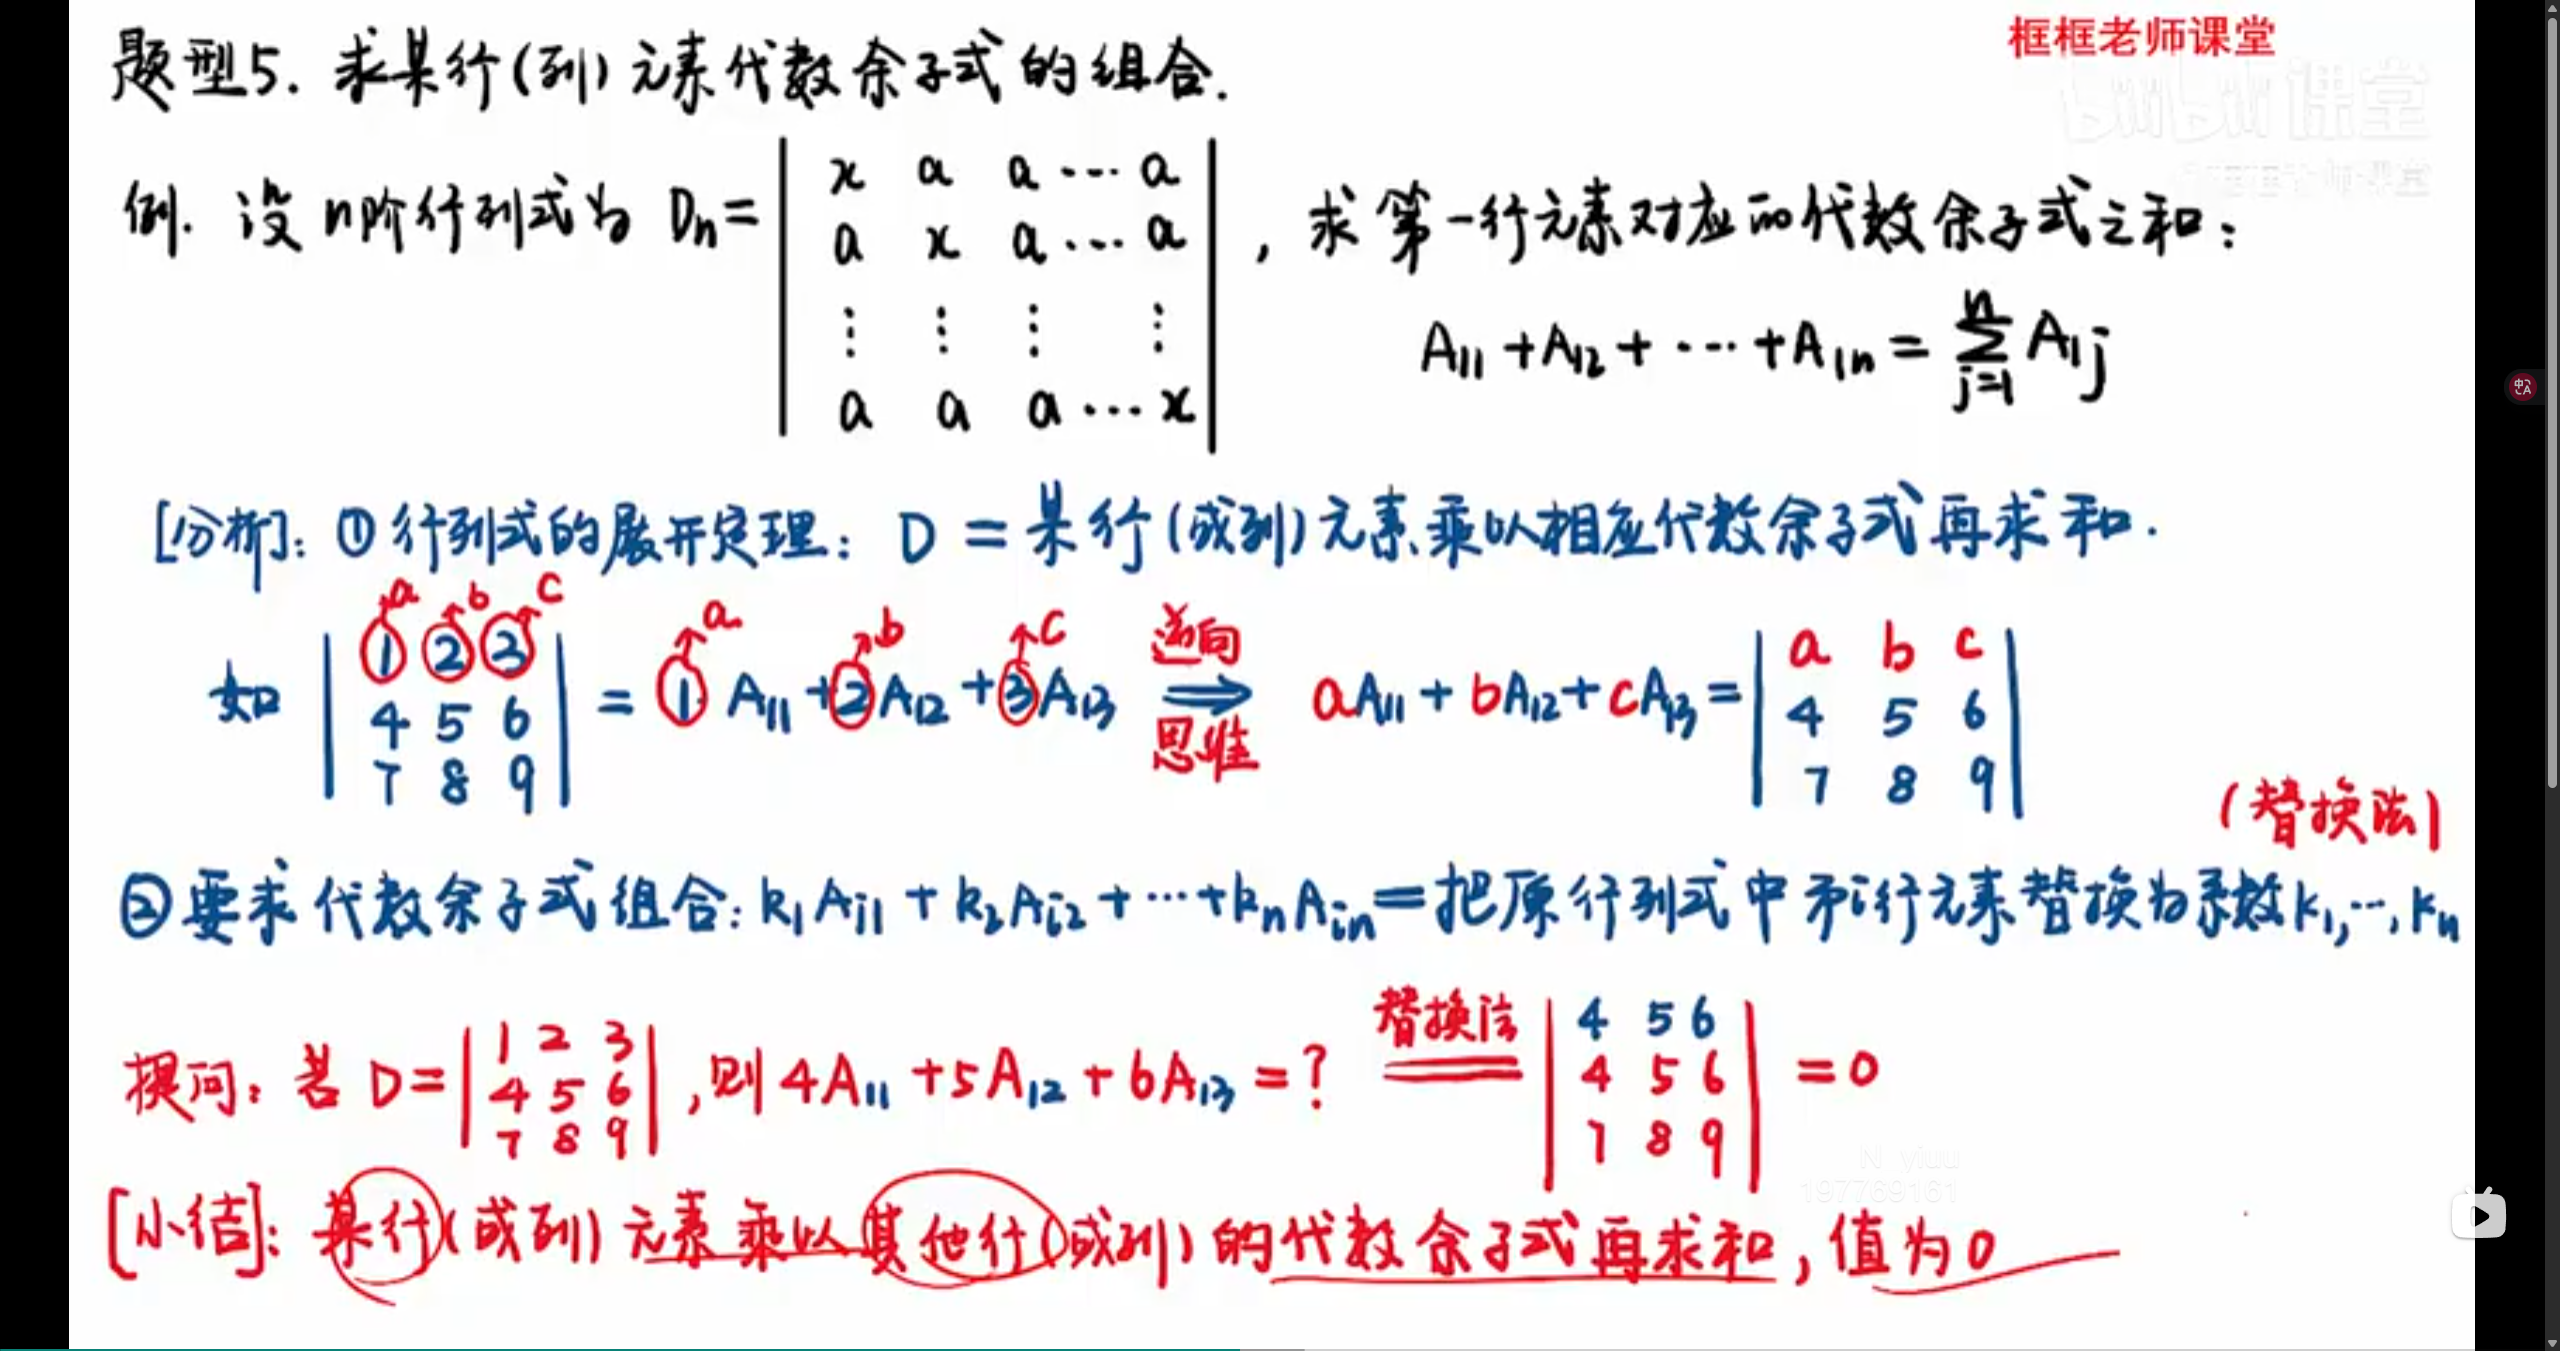 框框老师课堂
bilibili课堂
题型5. 求某行(列)元素代数余子式的组合.
例. 设n阶行列式为 Dn= | x a a ··· a |
| a x a ··· a |
| ⋮ ⋮ ⋮ ⋮ |
| a a a ··· x | , 求第一行元素对应的代数余子式之和:
A₁₁ + A₁₂ + ··· + A₁n = Σ(j=1→n) A₁j
[分析]: ① 行列式的展开定理: D = 某行(或列)元素乘以相应代数余子式再求和.
a b c
如 | 1 2 3 |
| 4 5 6 |
| 7 8 9 | = 1 A₁₁ + 2 A₁₂ + 3 A₁₃
a b c
逆向
⇒
思维
aA₁₁ + bA₁₂ + cA₁₃ = | a b c |
| 4 5 6 |
| 7 8 9 |
(替换法)
② 要求代数余子式组合: k₁Ai₁ + k₂Ai₂ + ··· + knAin = 把原行列式中第i行元素替换为系数k₁,···,kn
提问: 若 D = | 1 2 3 |
| 4 5 6 |
| 7 8 9 | , 则 4A₁₁ + 5A₁₂ + 6A₁₃ = ?
替换法
| 4 5 6 |
| 4 5 6 |
| 7 8 9 | = 0
N yiuu
197769161
[小结]: 某行(或列)元素乘以其他行(或列)的代数余子式再求和, 值为0